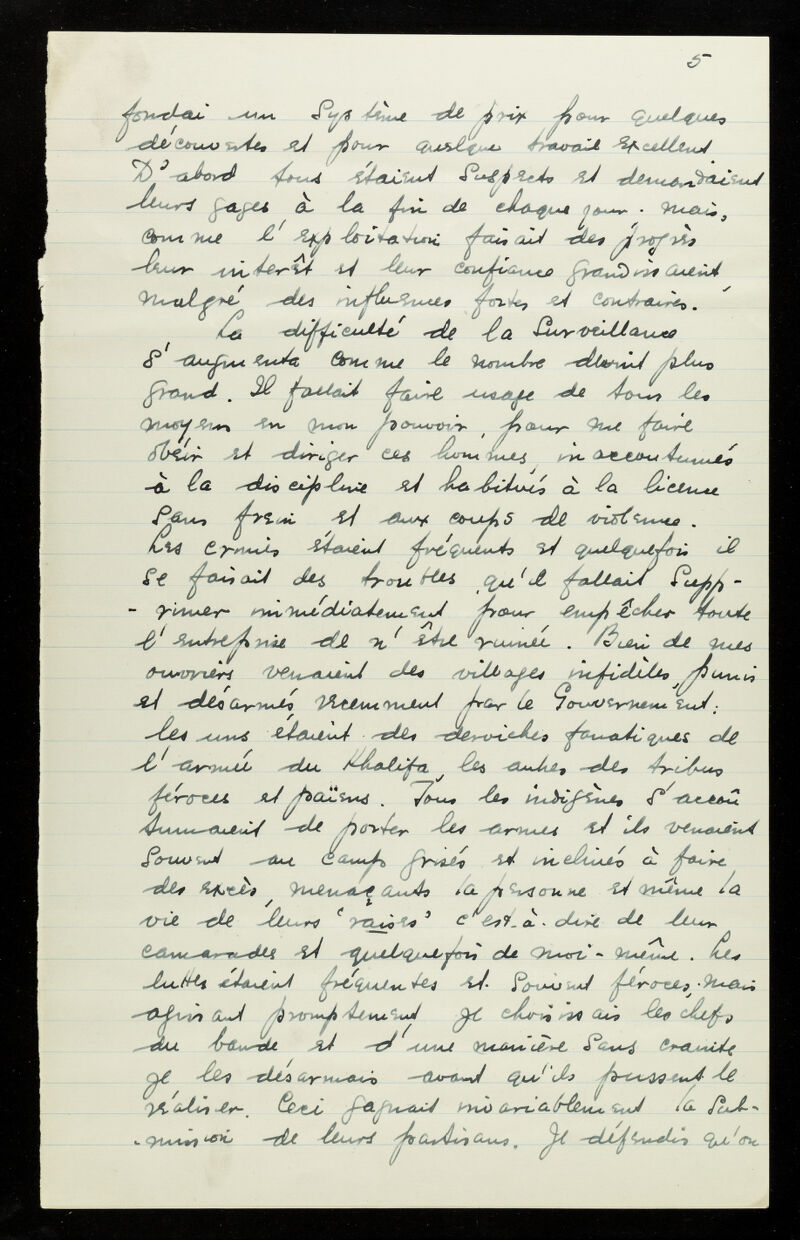 5
fondai un Système de prix pour quelques
découvertes et pour quelque travail excellent
D'abord tous étaient Suspects et demandaient
leurs gages à la fin de chaque jour. mais,
comme l'exploitation faisait des progrès
leur interêt et leur confiance grandissaient
malgré des influences fortes et contraires.
La difficulté de la Surveillance
S'augmenta comme le nombre devint plus
grand. Il fallait faire usage de tous les
moyens en mon pouvoir, pour me faire
obéir et diriger ces hommes, inaccoutumés
à la discipline et habitués à la licence
Sans frein et aux coups de violence.
Les crimes étaient fréquents et quelquefois il
se faisait des troubles qu'il fallait Supp-
-rimer immédiatement pour empêcher toute
l'entreprise de n'être ruinée. Bien de mes
ouvriers venaient des villages infidèles, punis
et désarmés recemment par le Gouvernement:
les uns étaient des derviches fanatiques de
l'armée du Khalifa, les autres des tribus
féroces et païens. Tous les indigènes S'accoû
tumaient de porter les armes et ils venaient
Souvent au camp grisés et inclinés à faire
des excès, menaçants la personne et même la
vie de leurs 'raises' c'est-à-dire de leur
camarades et quelquefois de moi-même. Les
luttes étaient fréquentes et Souvent féroces, mais
agissant promptement je choisissais les chefs
du bande et d'une manière Sans crainte
je les désarmais avant qu'ils pussent le
réaliser. Ceci gagnait invariablement la Sub-
-mission de leurs partisans. Je défendis qu'on